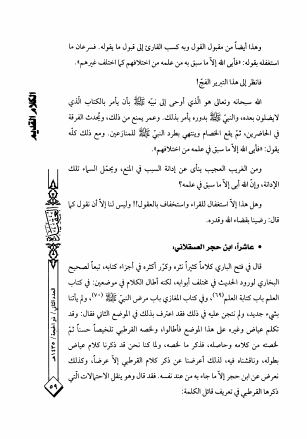 وهذا أيضاً من مقبول القول وبه كسب القارئ إلى قبول ما يقوله. فسرعان ما
استغفله بقوله: «فأبى الله إلاّ ما سبق به من علمه من اختلافهم كما اختلف غيرهم».
فانظر إلى هذا التبرير الفجّ!
الله سبحانه وتعالى هو الّذي أوحى إلى نبيّه ﷺ بأن يأمر بالكتاب الّذي
لا يضلون بعده، والنبيّ ﷺ بدوره يأمر بذلك. وعمر يمنع من ذلك، ويُحدث الفرقة
في الحاضرين، ثمّ يقع الخصام وينتهي بطرد النبيّ ﷺ للمتنازعين. ومع ذلك كلّه
يقول: «فأبى الله إلاّ ما سبق في علمه من اختلافهم».
ومن الغريب العجيب ينأى عن إدانة السبب في المنع، ويحمّل السماء تلك
الإدانة، وإنّ الله أبى إلاّ ما سبق في علمه؟
وهل هذا إلاّ استغفال للقراء واستخفاف بالعقول!! وليس لنا إلاّ أن نقول كما
قال: رضينا بقضاء الله وقدره.
• عاشراً: ابن حجر العسقلاني:
قال في فتح الباري كلاماً كثيراً نثره وكرّر أكثره في أجزاء كتابه، تبعاً لصحيح
البخاري لورود الحديث في مختلف أبوابه، لكنه أطال الكلام في موضعين: في كتاب
العلم باب كتابة العلم(٦٩)، وفي كتاب المغازي باب مرض النبيّ ﷺ(٧٠)، ولم يأتنا
بشيء جديد، ولم نتجن عليه في ذلك فقد اعترف بذلك في الموضع الثاني فقال: وقد
تكلم عياض وغيره على هذا الموضع فأطالوا، ولخصه القرطبي تلخيصاً حسناً ثمّ
لخصته من كلامه وحاصله، فذكر ما لخصه، ولما كنا نحن قد ذكرنا كلام عياض
بطوله، وناقشناه فيه، لذلك أعرضنا عن ذكر كلام القرطبي إلاّ عرضاً، وكذلك
نعرض عن ابن حجر إلاّ ما جاء به من عند نفسه. فقد قال وهو ينقل الاحتمالات الّتي
ذكرها القرطبي في تعريف قائل الكلمة:
الكلام القديم
العدد الثاني / ذو الحجة / ١٤٣٥هـ
٥٩